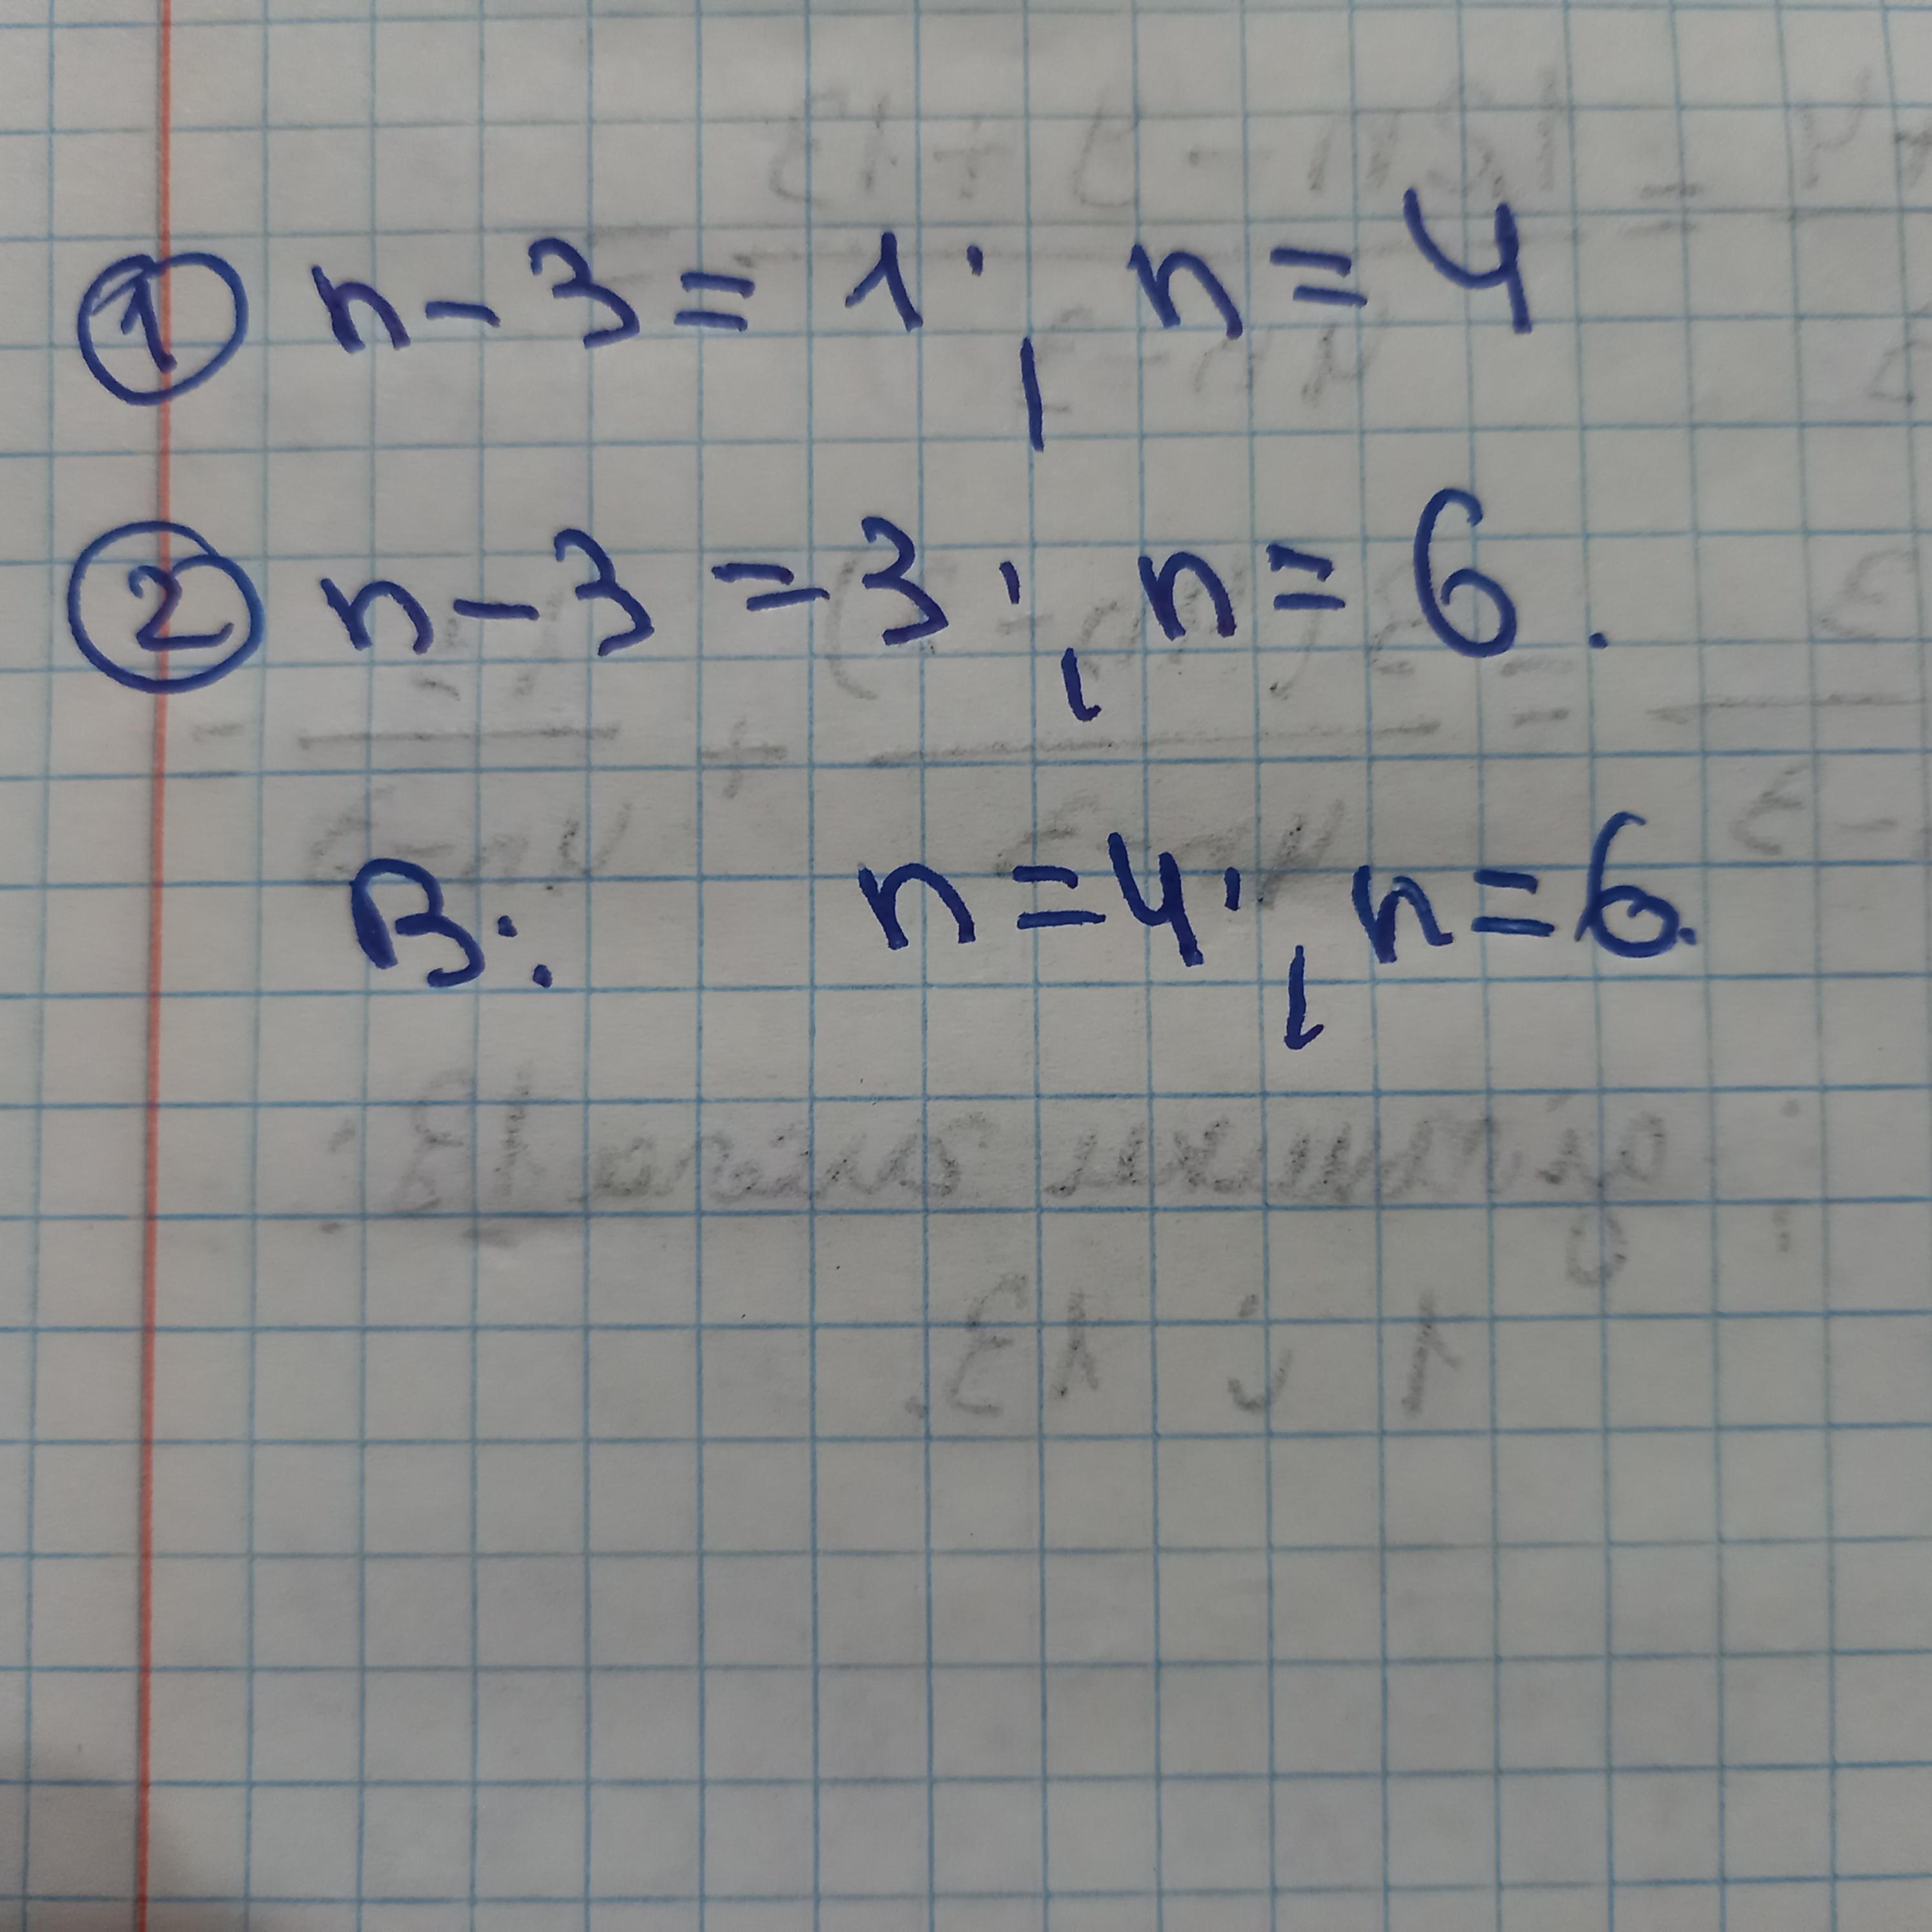 ① n - 3 = 1; n = 4
② n - 3 = 3; n = 6.
В: n = 4; n = 6.